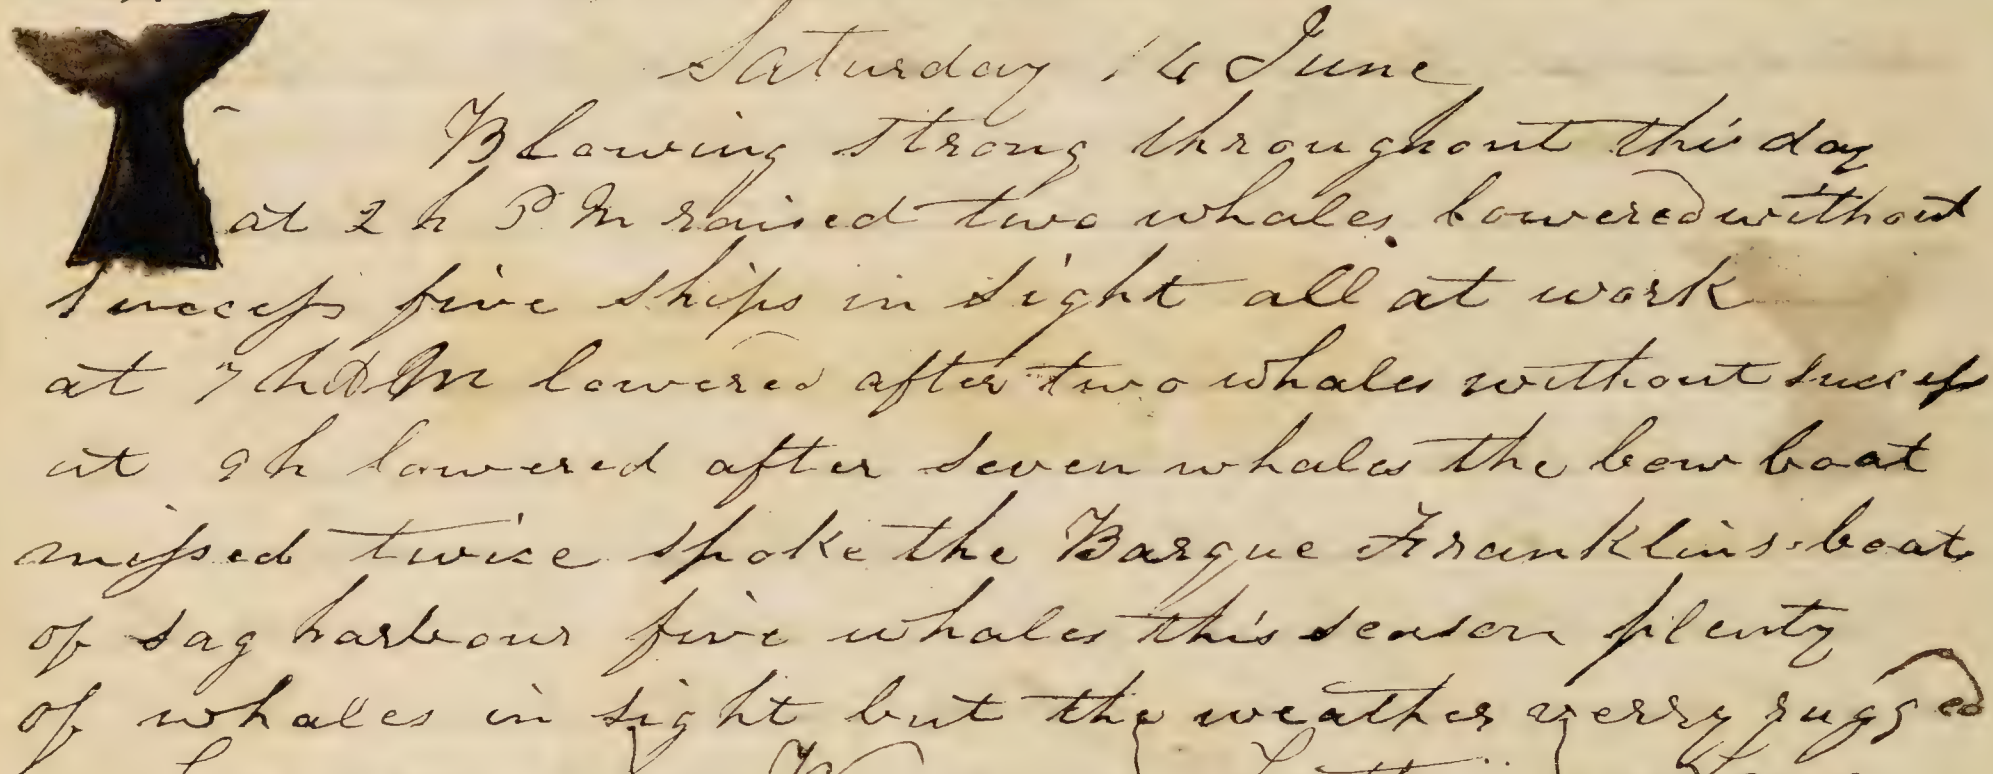 Saturday 14 June
Blowing strong throughout this day
at 2 h P M raised two whales. lowered without
success five ships in sight all at work
at 7 h A M lowered after two whales without success
at 9 h lowered after seven whales the bow boat
missed twice spoke the Barque Franklins boats
of sag harbour five whales this season plenty
of whales in sight but the weather verry rugged